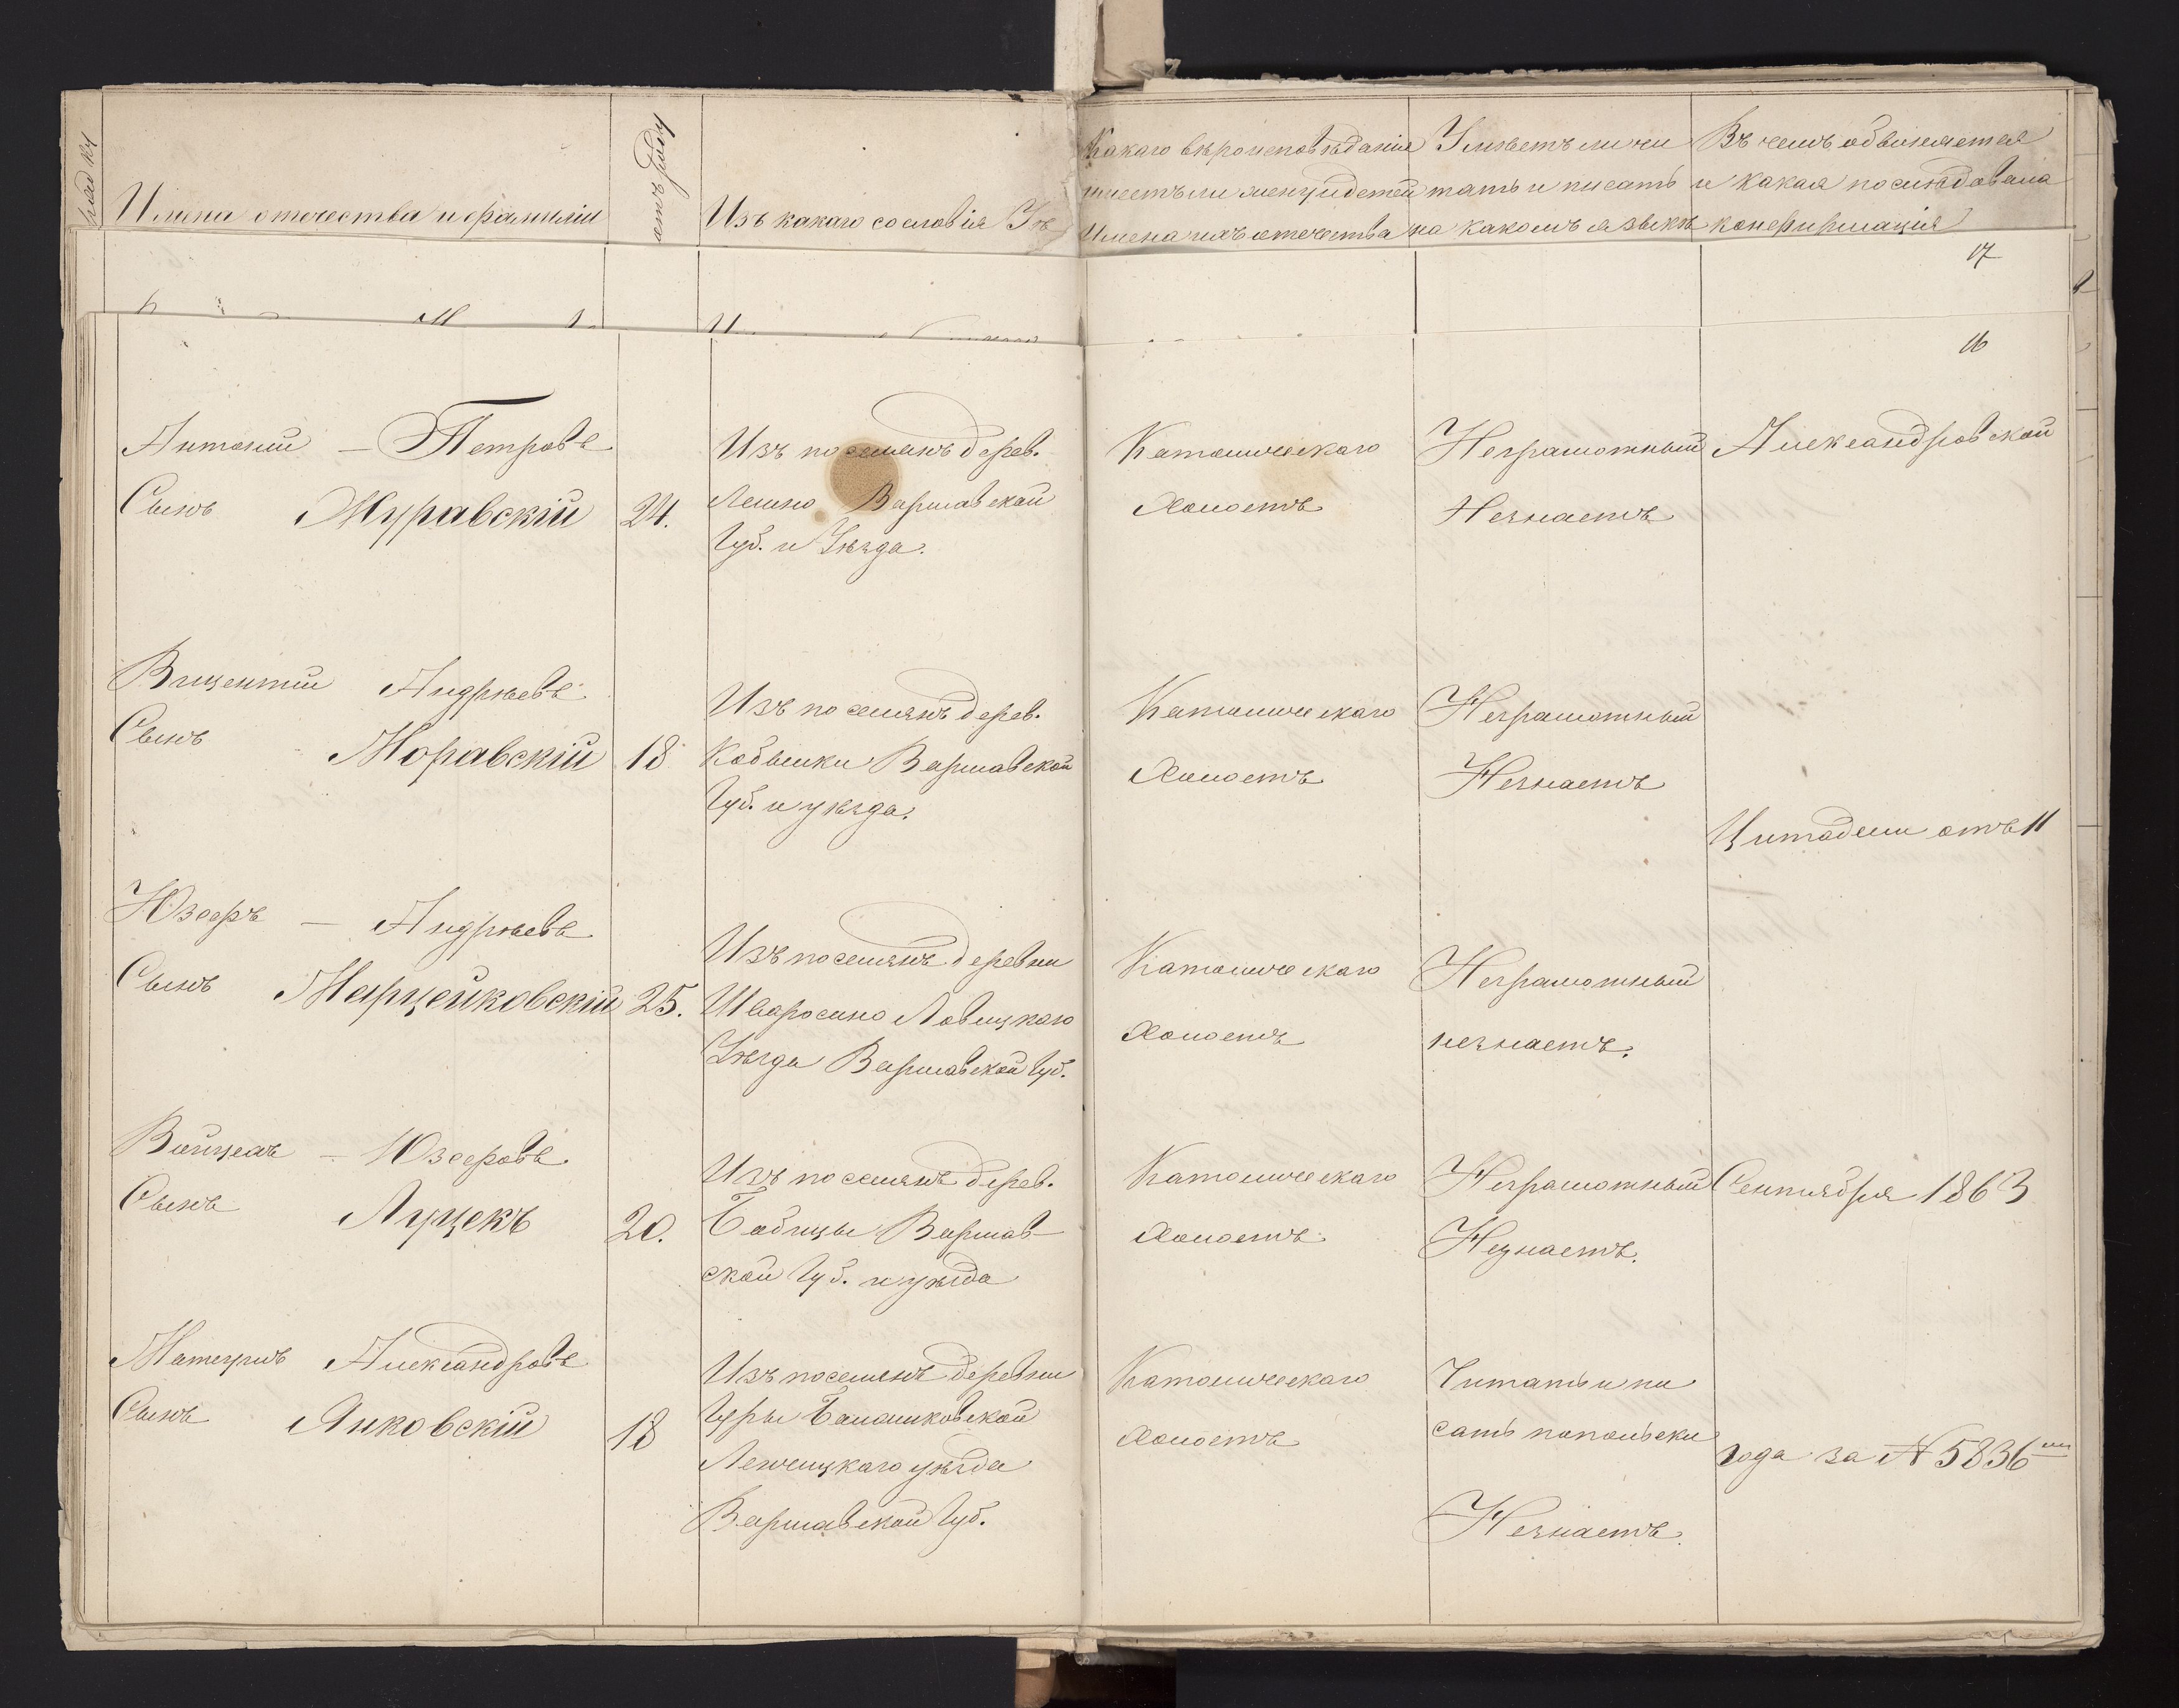 Имена отечества и фамилiи
Изъ какаго сословiя
Какаго вѣроисповѣданiя
имеетъ ли жену и детей
Имена ихъ отечества
Умѣетъ ли чи
тать и писать
на какомъ языкѣ
Въ чемъ обвиняется
и какая последовала
конфирмацiя
17
16
Антонiй — Петровъ
Сынъ Журавскiй
24.
Изъ поселянъ дерев.
Лешно Варшавской
Губ. и Уѣзда.
Католическаго
Холостъ
Неграмотный
Незнаетъ
Александровской
Вицентiй Андрѣевъ
Сынъ Моравскiй
18
Изъ поселянъ дерев.
Кобылки Варшавской
Губ. и уѣзда.
Католическаго
Холостъ
Неграмотный
Незнаетъ
Цитадели отъ 11
Юзефъ — Андрѣевъ
Сынъ Марцейковскiй
25.
Изъ поселянъ деревни
Ловицкаго
Уѣзда Варшавской Губ.
Католическаго
Холостъ
Неграмотный
незнаетъ.
Войцехъ — Юзефовъ
Сынъ Луцекъ
20.
Изъ поселянъ дерев.
Бабицы Варшав-
ской Губ. и уѣзда
Католическаго
Холостъ
Неграмотный
Незнаетъ.
Сентября 1863
Матеушъ Александровъ
Сынъ Янковскiй
18
Изъ поселянъ деревни
Гуры Бальшковской
Ленчицкаго уѣзда
Варшавской Губ.
Католическаго
Холостъ
Читать и пи
сать попольски
Незнаетъ.
года за № 5836